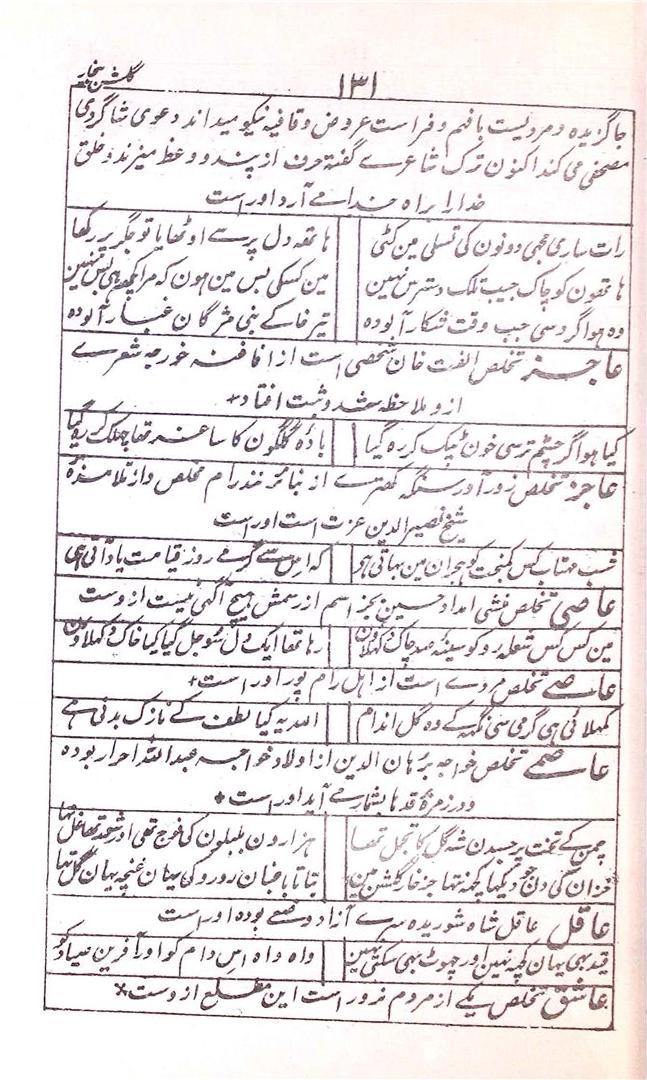 گلشن بیخار
۱۳۱
جا گزیده و مردیست با فہم و فراست عروض و قافیہ نیکو میداند دعوی شاگردی
مصحفی می کند اکنون ترک شاعرے گفتہ حرف از پند و وعظ میزند و خلق
خدا را براہ خدا مے آرد او راست
رات ساری مجہی دونون کی تسلی مین کٹی ہاتھہ دل پر سے اوٹھایا تو جگر پر رکھا
ہاتھون کو چاک جیب تلک دسترس نہین مین کسکی بس مین ہون کہ مرا کچھہ ہی بس نہین
وہ ہوا گرد سی جب وقت شکار آلودہ تیر خاکے بنی مژگان غبار آلودہ
عاجز تخلص الفت خان شخصی است از افاغنہ خورجہ شعرے
ازو ملاحظہ شد و ثبت افتاد+
کیا ہوا گر چشم ترسی خون ٹپک کر رہ گیا بادۂ گلگون کا ساغر تھا چھلک کر رہ گیا
عاجز تخلص زورآور سنگہ کھترے از نبائر نندرام مخلص و از تلامذۂ
شیخ نصیر الدین عزت است او راست
شب مہتاب کس کمبخت کو ہجران مین بہاتی ہی کہ اس سے گرمے روز قیامت یاد آتی ہی
عاصی تخلص منشی امداد حسین بجز اسم از رسمش ہیچ آگہی نیست ازوست
مین کس کس شعلہ رو کو سینۂ صد چاک دکہلاون رہا تھا ایک دل سو جل گیا کیا خاک دکہلاون
عاصے تخلص مردے است از اہل رام پور او راست+
کھلائی ہی گرمی سی نگہہ کے وہ گل اندام اللہ یہ کیا لطف کے نازک بدنی ہے
عاصمے تخلص خواجہ برہان الدین از اولاد خواجہ عبد اللہ احرار بودہ
و در زمرۂ قدما بشمار مے آید او راست*
چمن کے تخت پر جسدن شہ گل کا تجمل تھا ہزارون بلبلون کی فوج تھی اور شور تھا غل تھا
خزان کی دن جو دیکہا کچہہ نتھا جز خار گلشن مین بتاتا باغبان رو رو کی یہان غنچہ یہان گل تھا
عاقل عاقل شاہ شوریدہ سرے آزاد وضعے بودہ او راست
قید بہی یہان کچہہ نہین اور چھوٹ بہی سکتی نہین واہ واہ اس دام کو اور آفرین صیاد کو
عاشق تخلص یکے از مردم است این مطلع ازوست*